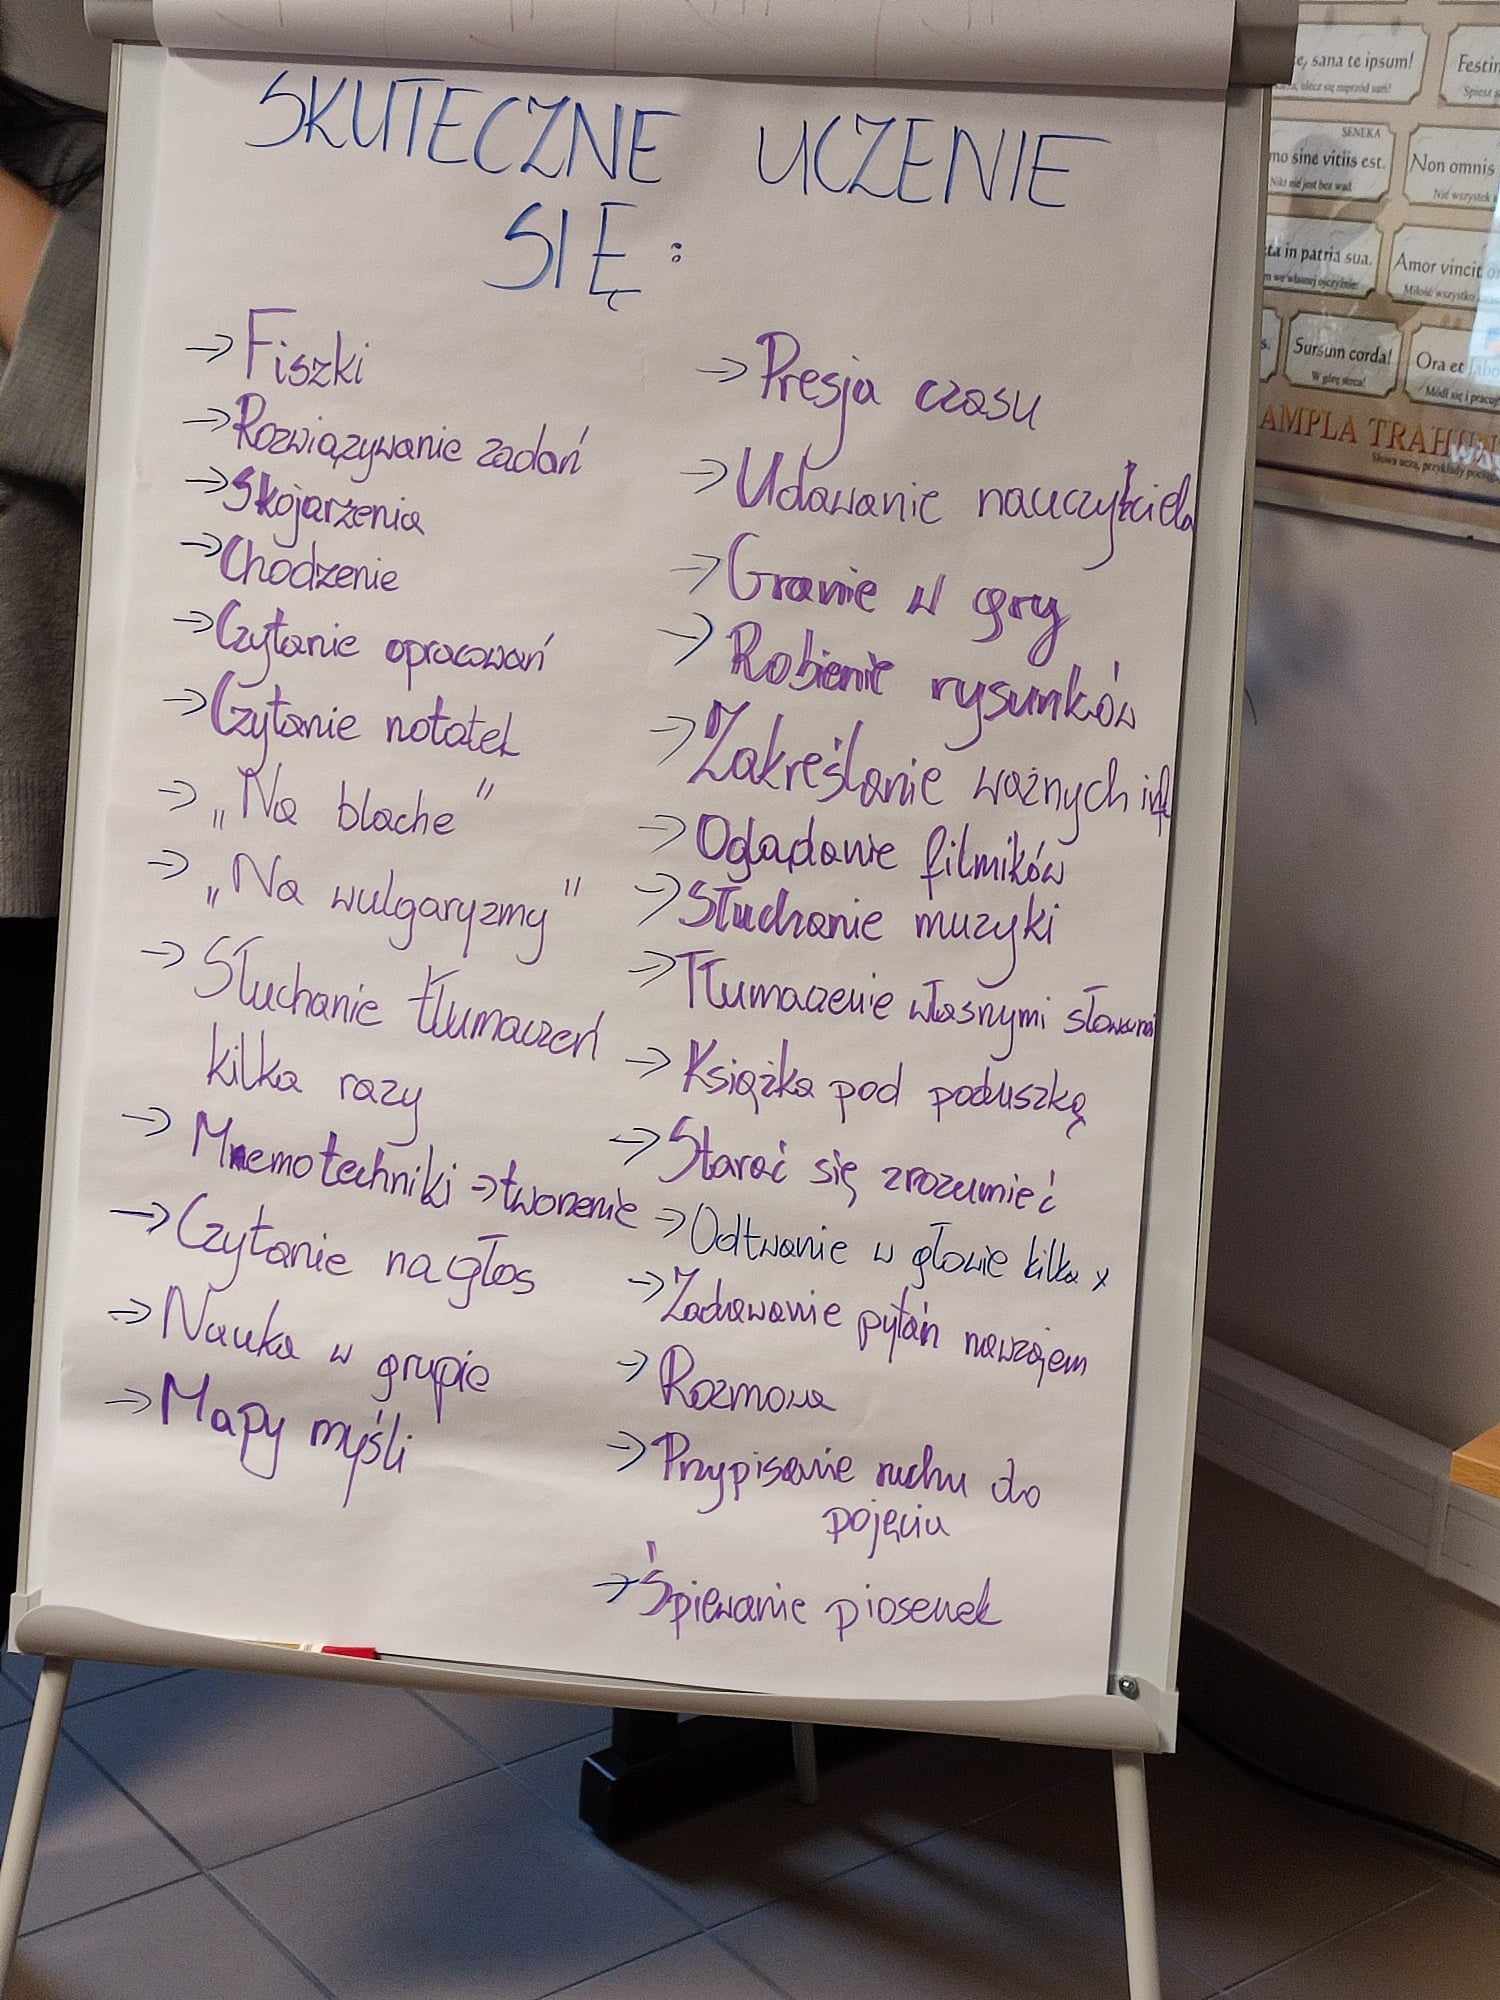 SKUTECZNE UCZENIE
SIĘ:
→ Fiszki
→ Rozwiązywanie zadań
→ Skojarzenia
→ Chodzenie
→ Czytanie opracowań
→ Czytanie notatek
→ „Na blache"
→ „Na wulgaryzmy"
→ Słuchanie tłumaczeń
kilka razy
→ Mnemotechniki → tworzenie
→ Czytanie na głos
→ Nauka w grupie
→ Mapy myśli
→ Presja czasu
→ Udawanie nauczyciela
→ Granie w gry
→ Robienie rysunków
→ Zakreślanie ważnych inf
→ Oglądanie filmików
→ Słuchanie muzyki
→ Tłumaczenie własnymi słowami
→ Książka pod poduszką
→ Starać się zrozumieć
→ Odtwanie w głowie kilka x
→ Zadawanie pytań nawzajem
→ Rozmowa
→ Przypisanie ruchu do
pojęcia
→ Śpiewanie piosenek
sana te ipsum!
ulecz się naprzód sam!
Festin
Spiesz
SENEKA
mo sine vitiis est.
Nikt nie jest bez wad.
Non omnis
Nie wszystek
in patria sua.
we własnej ojczyźnie.
Amor vincit
Miłość wszystko
Sursum corda!
W górę serca!
Ora et labo
Módl się i pracuj
AMPLA TRAHUN
Słowa uczą, przykłady pociąg